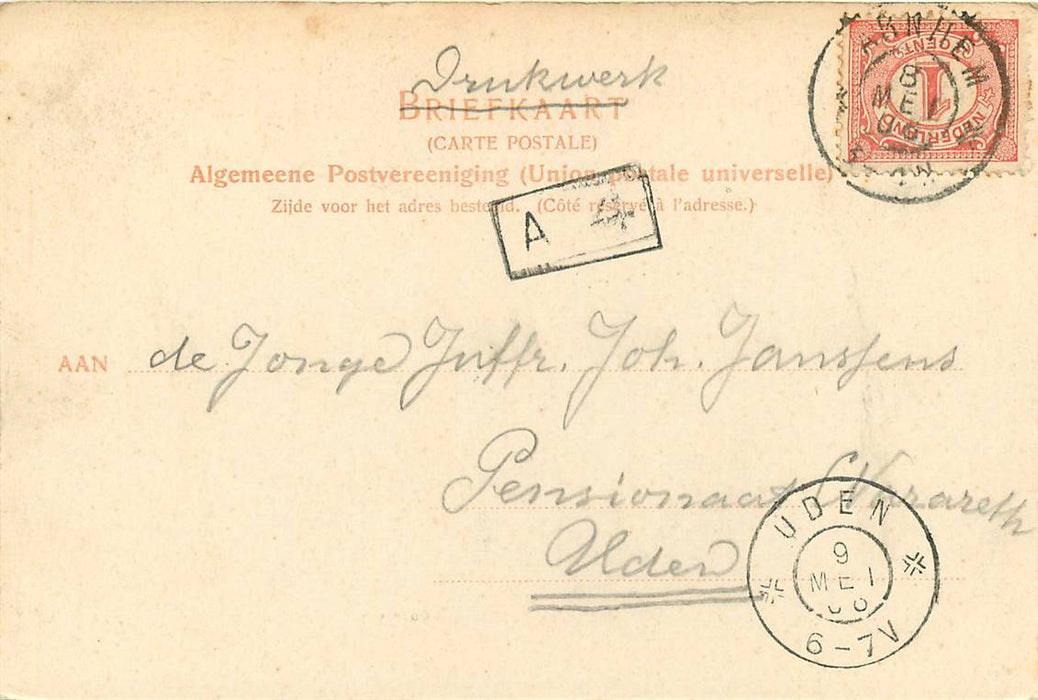 Drukwerk
BRIEFKAART
(CARTE POSTALE)
Algemeene Postvereeniging (Union postale universelle)
Zijde voor het adres bestemd. (Côté réservé à l'adresse.)
A
AAN de Jonge Juffr. Joh. Janssens
Pensionaat Nazareth
Uden
ARNHEM
8
MEI
1
CENT
NEDERLAND
UDEN
9
MEI
6-7V